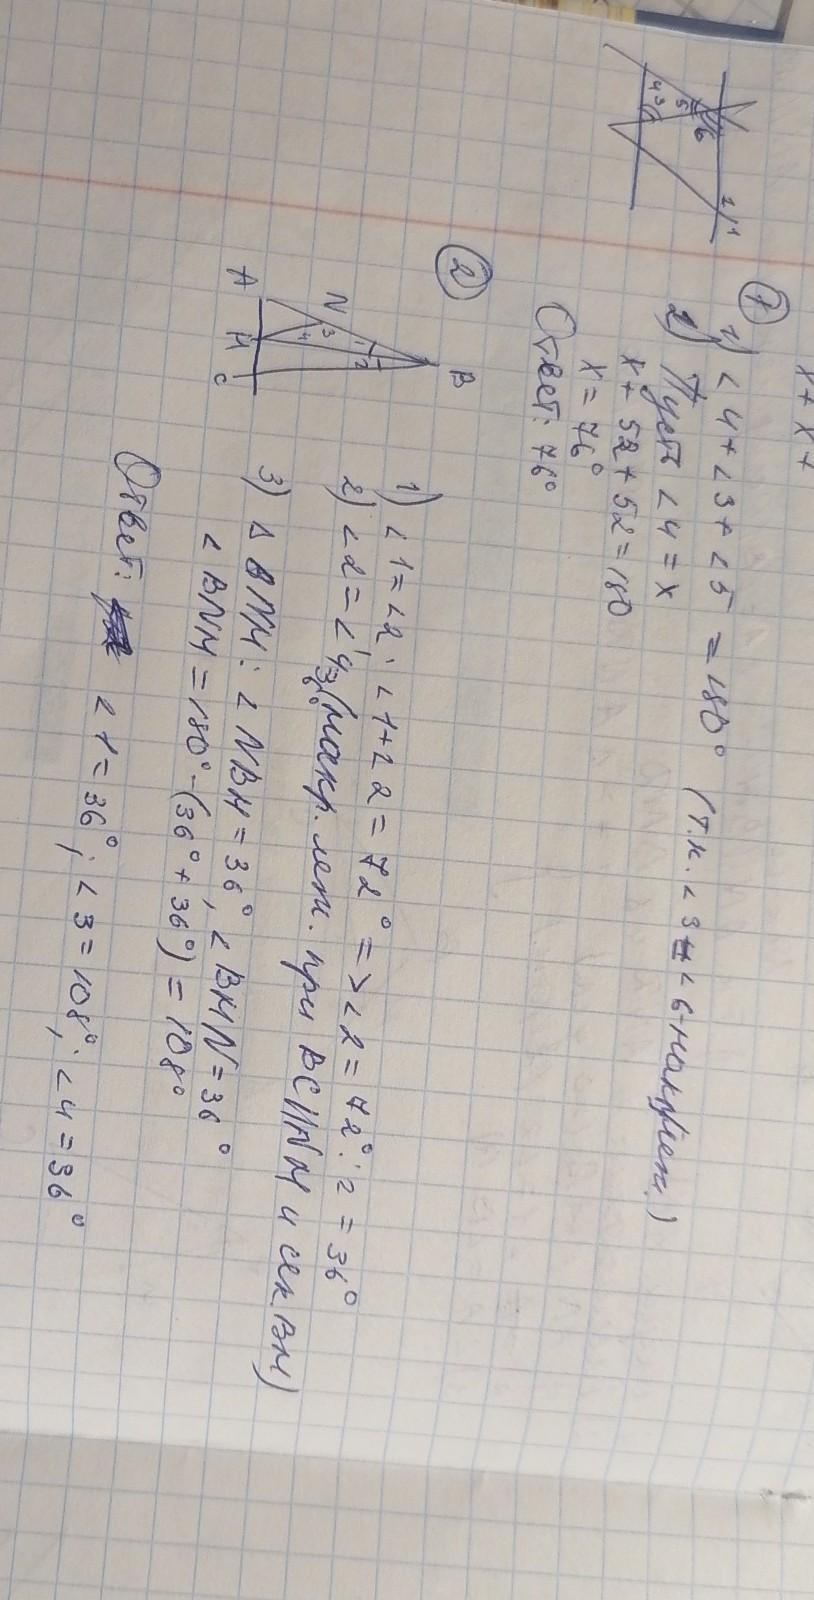 x + x +
①
1) ∠4 + ∠3 + ∠5 = 180° (т.к. ∠3 и ∠6 - накрлеж.)
2) Пусть ∠4 = x
x + 52 + 52 = 180
x = 76°
Ответ: 76°
4 3 5 6 2 1
②
A N B M C 1 2 3 4
1) ∠1 = ∠2; ∠1+∠2 = 72° => ∠2 = 72° : 2 = 36°
2) ∠2 = ∠4 (накр. леж. при BC || NM и сек. BM)
36°
3) △ BNM : ∠NBM = 36°, ∠BMN = 36°
∠BNM = 180° - (36° + 36°) = 108°
Ответ: ∠1 = 36°; ∠3 = 108°; ∠4 = 36°